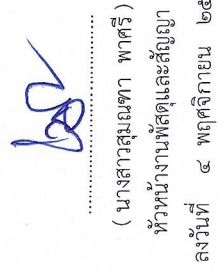 (นางสาวสุมณฑา พาศรี)
หัวหน้างานพัสดุและสัญญา
ลงวันที่ ๔ พฤศจิกายน